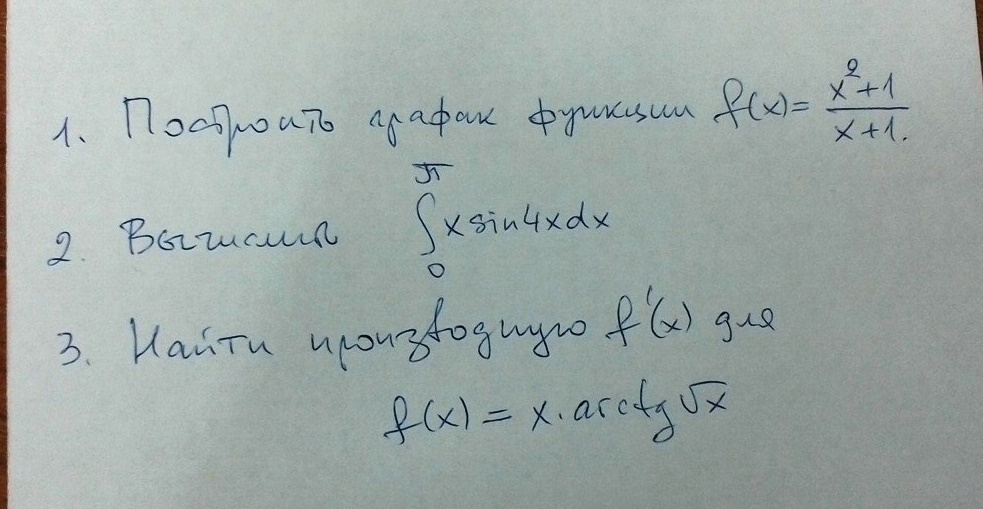 1. Построить график функции f(x)= (x²+1)/(x+1).
2. Вычислить ∫₀^π x sin4x dx
3. Найти производную f'(x) для
f(x) = x · arctg √x